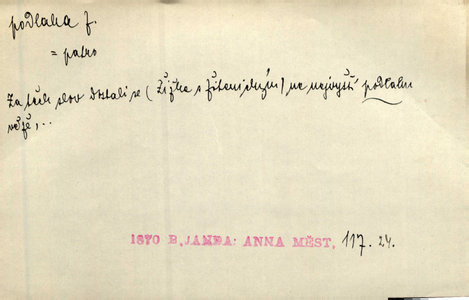 podlaha f.
= patro
Za těch slov dostali se (Žižka s Řitenským) na nejvyšší podlahu
věže, ..
1870 B. JANDA: ANNA MĚST. 117. 24.